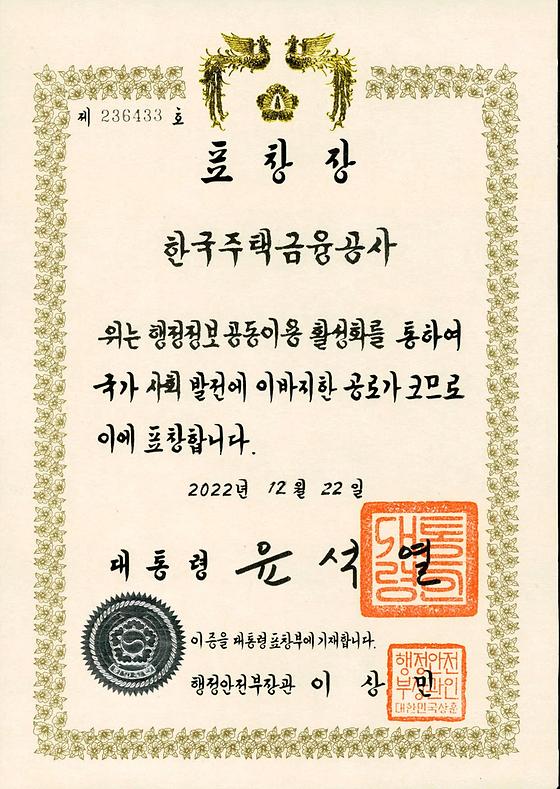 제 236433 호
표창장
한국주택금융공사
위는 행정정보 공동이용 활성화를 통하여
국가 사회 발전에 이바지한 공로가 크므로
이에 표창합니다.
2022년 12월 22일
대통령 윤석열
대통령의인
이 증을 대통령표창부에 기재합니다.
행정안전부장관 이상민
행정안전
부장관인
대한민국상훈